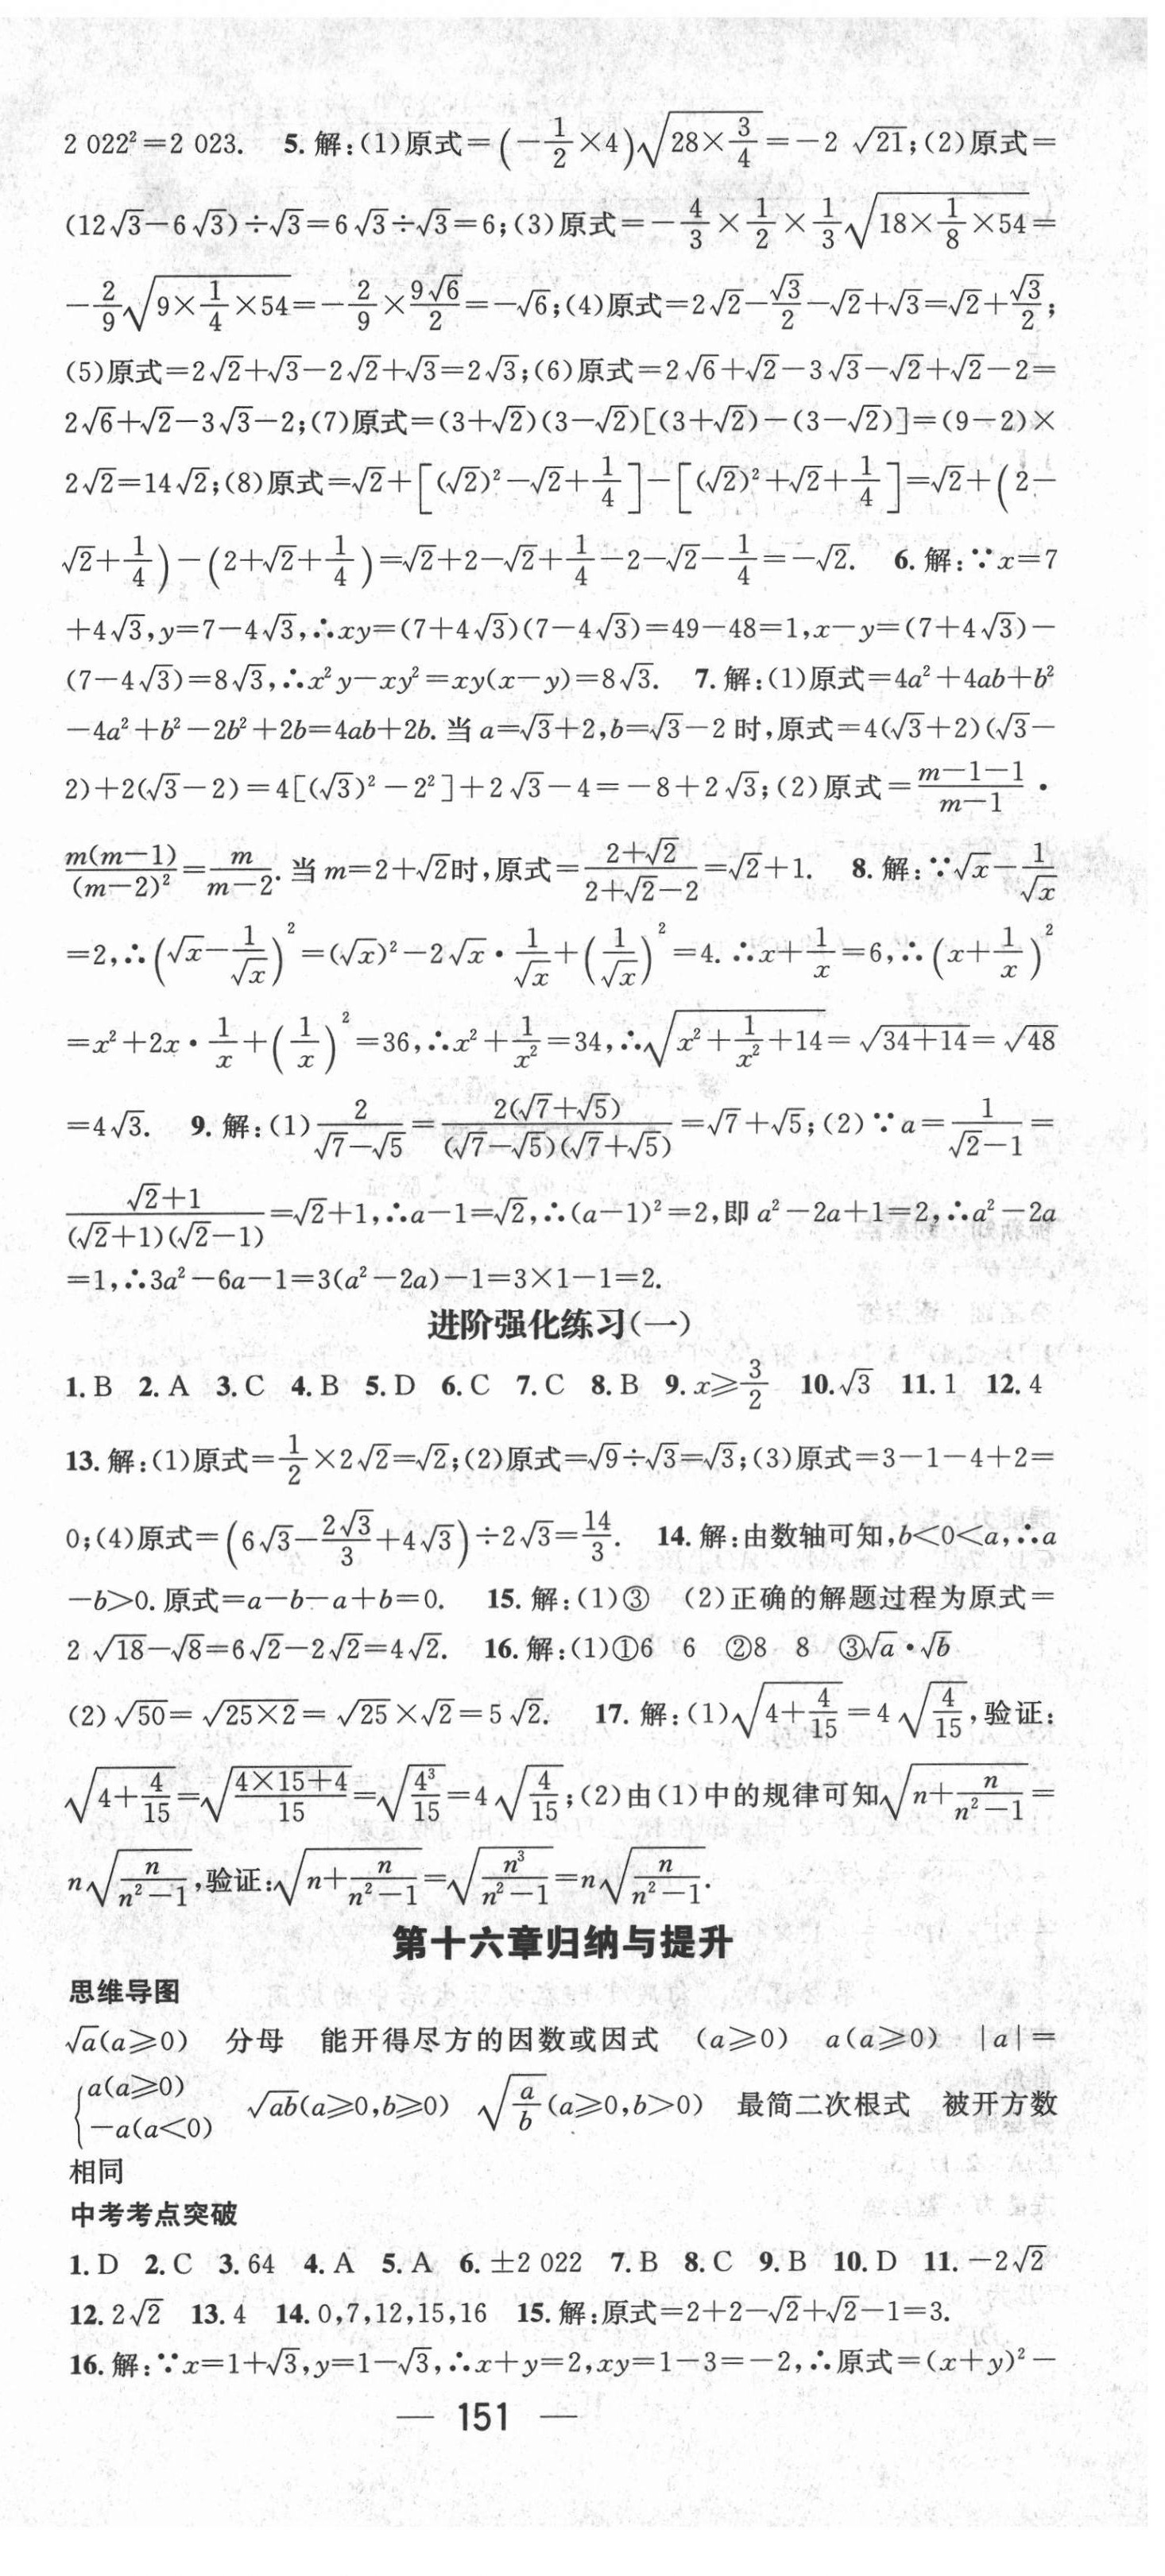 2 022²=2 023.　5.解:(1)原式=(-1/2×4)√(28×3/4)=-2 √21;(2)原式=
(12√3-6√3)÷√3=6√3÷√3=6;(3)原式=-4/3×1/2×1/3√(18×1/8×54)=
-2/9√(9×1/4×54)=-2/9×9√6/2=-√6;(4)原式=2√2-√3/2-√2+√3=√2+√3/2;
(5)原式=2√2+√3-2√2+√3=2√3;(6)原式=2√6+√2-3√3-√2+√2-2=
2√6+√2-3√3-2;(7)原式=(3+√2)(3-√2)[(3+√2)-(3-√2)]=(9-2)×
2√2=14√2;(8)原式=√2+[(√2)²-√2+1/4]-[(√2)²+√2+1/4]=√2+(2-
√2+1/4)-(2+√2+1/4)=√2+2-√2+1/4-2-√2-1/4=-√2.　6.解:∵x=7
+4√3,y=7-4√3,∴xy=(7+4√3)(7-4√3)=49-48=1,x-y=(7+4√3)-
(7-4√3)=8√3,∴x²y-xy²=xy(x-y)=8√3.　7.解:(1)原式=4a²+4ab+b²
-4a²+b²-2b²+2b=4ab+2b.当a=√3+2,b=√3-2时,原式=4(√3+2)(√3-
2)+2(√3-2)=4[(√3)²-2²]+2√3-4=-8+2√3;(2)原式=(m-1-1)/(m-1)·
m(m-1)/(m-2)²=m/(m-2).当m=2+√2时,原式=(2+√2)/(2+√2-2)=√2+1.　8.解:∵√x-1/√x
=2,∴(√x-1/√x)²=(√x)²-2√x·1/√x+(1/√x)²=4.∴x+1/x=6,∴(x+1/x)²
=x²+2x·1/x+(1/x)²=36,∴x²+1/x²=34,∴√(x²+1/x²+14)=√(34+14)=√48
=4√3.　9.解:(1)2/(√7-√5)=2(√7+√5)/((√7-√5)(√7+√5))=√7+√5;(2)∵a=1/(√2-1)=
(√2+1)/((√2+1)(√2-1))=√2+1,∴a-1=√2,∴(a-1)²=2,即a²-2a+1=2,∴a²-2a
=1,∴3a²-6a-1=3(a²-2a)-1=3×1-1=2.
进阶强化练习(一)
1.B　2.A　3.C　4.B　5.D　6.C　7.C　8.B　9.x≥3/2　10.√3　11.1　12.4
13.解:(1)原式=1/2×2√2=√2;(2)原式=√9÷√3=√3;(3)原式=3-1-4+2=
0;(4)原式=(6√3-2√3/3+4√3)÷2√3=14/3.　14.解:由数轴可知,b<0<a,∴a
-b>0.原式=a-b-a+b=0.　15.解:(1)③　(2)正确的解题过程为原式=
2 √18-√8=6√2-2√2=4√2.　16.解:(1)①6　6　②8　8　③√a·√b
(2)√50=√(25×2)=√25×√2=5√2.　17.解:(1)√(4+4/15)=4√(4/15),验证:
√(4+4/15)=√((4×15+4)/15)=√(4³/15)=4√(4/15);(2)由(1)中的规律可知√(n+n/(n²-1))=
n√(n/(n²-1)),验证:√(n+n/(n²-1))=√(n³/(n²-1))=n√(n/(n²-1)).
第十六章归纳与提升
思维导图
√a(a≥0)　分母　能开得尽方的因数或因式　(a≥0)　a(a≥0)　|a|=
{a(a≥0) -a(a<0)　√ab(a≥0,b≥0)　√(a/b)(a≥0,b>0)　最简二次根式　被开方数
相同
中考考点突破
1.D　2.C　3.64　4.A　5.A　6.±2 022　7.B　8.C　9.B　10.D　11.-2√2
12.2√2　13.4　14.0,7,12,15,16　15.解:原式=2+2-√2+√2-1=3.
16.解:∵x=1+√3,y=1-√3,∴x+y=2,xy=1-3=-2,∴原式=(x+y)²-
— 151 —